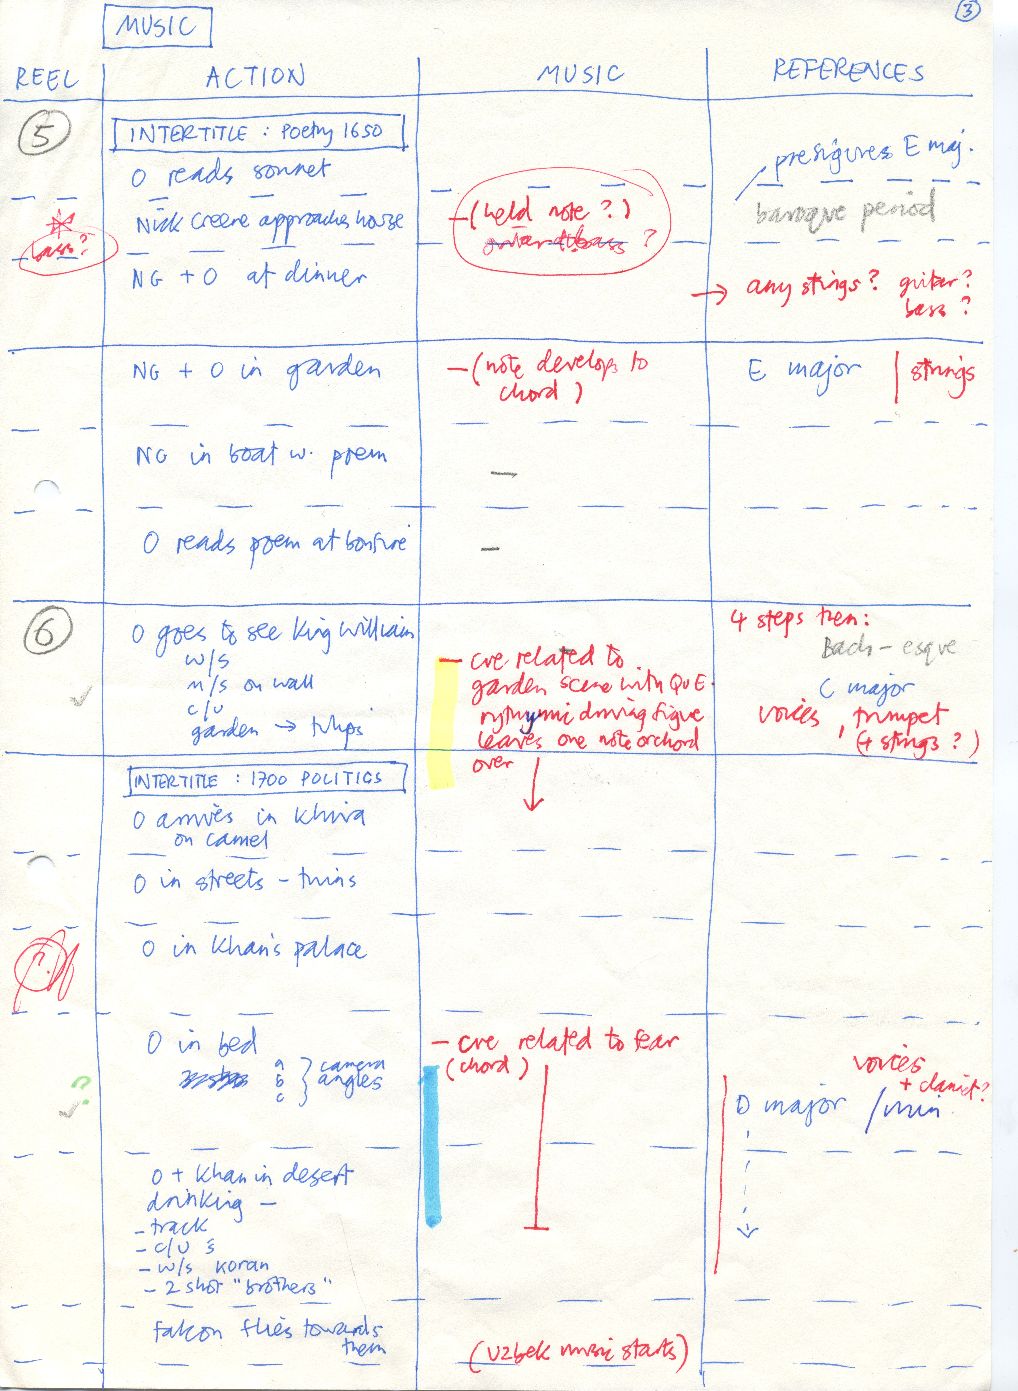 3
MUSIC
REEL ACTION MUSIC REFERENCES
5
INTERTITLE : Poetry 1650
O reads sonnet
presigures E maj.
Nick Greene approaches house
-(held note ?)
guitar + bass ?
baroque period
bass?
NG + O at dinner
→ any strings? guitar?
bass ?
NG + O in garden
-(note develops to
chord )
E major | strings
NG in boat w. poem
—
O reads poem at bonfire
—
6
O goes to see King William
w/s
m/s on wall
c/u
garden → tulips
- cue related to
garden scene with Q.E.
rythymic driving figure
leaves one note or chord
over
4 steps then:
Bach-esque
C major
voices, trumpet
(+ strings ?)
INTERTITLE : 1700 POLITICS
O arrives in Khiva
on camel
O in streets - twins
O in Khan's palace
?
O in bed
a
b
c
} camera
angles
- cue related to fear
(chord )
voices
+ clarinet?
D major /min
?
O + Khan in desert
drinking -
- track
- c/u s
- w/s Koran
- 2 shot "brothers"
falcon flies towards
them
(Uzbek music starts)